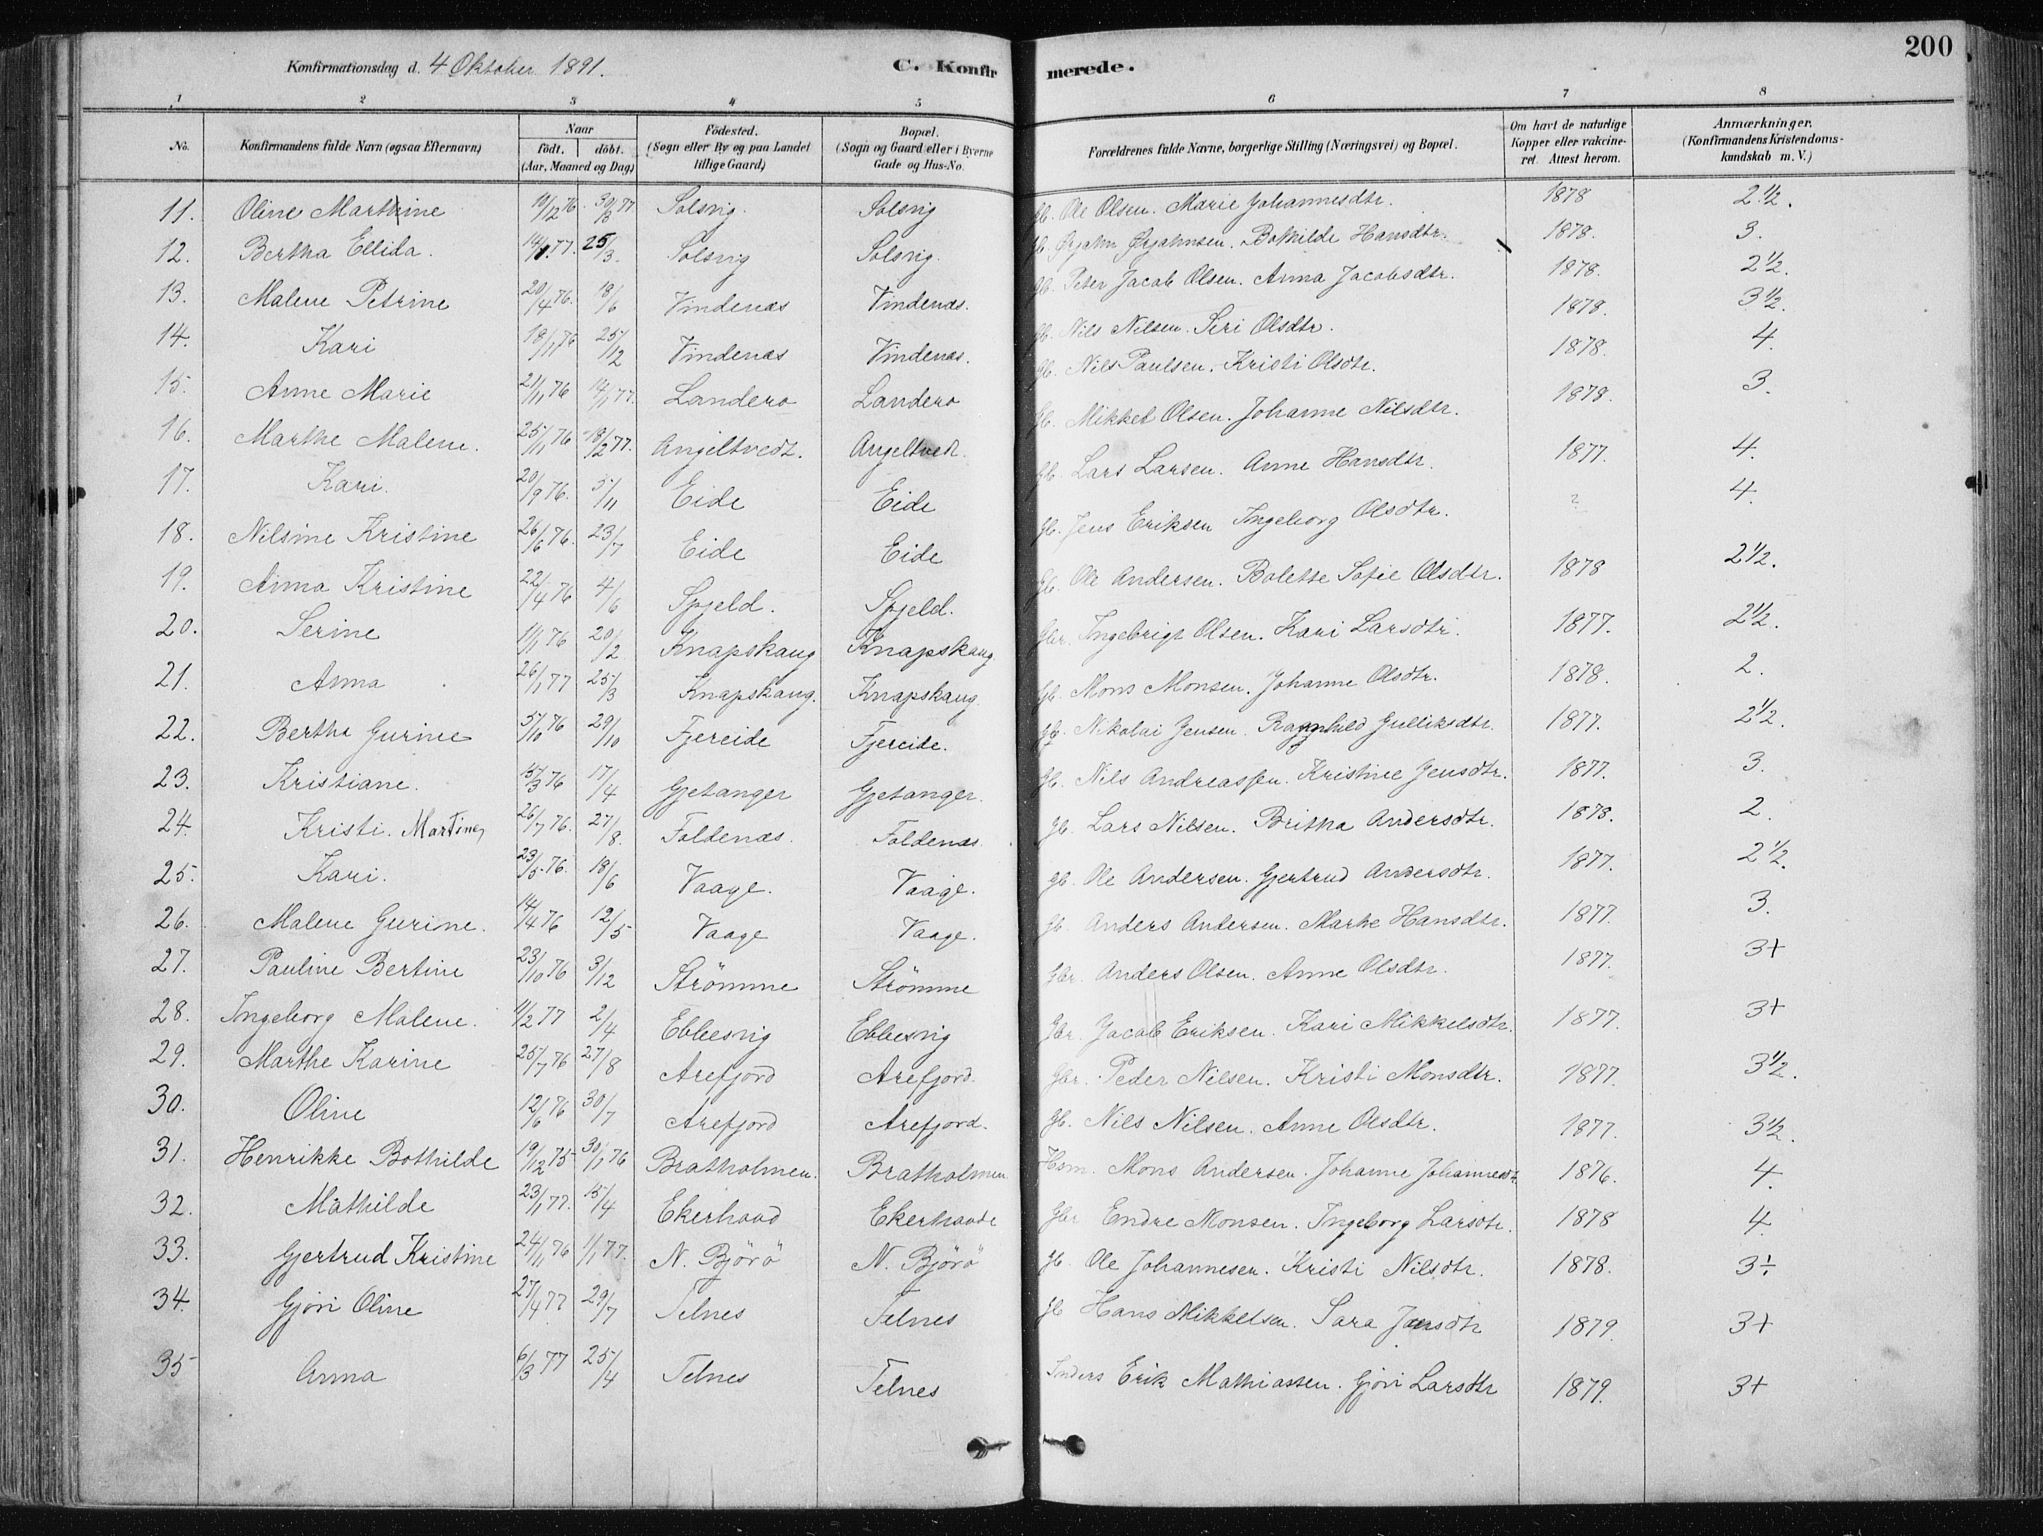 200
Konfirmationsdag d. 4 Oktober 1891.
C. Konfirmerede.
1 2 3 4 5 6 7 8
No. Konfirmandens fulde Navn (ogsaa Efternavn) Naar født. døbt. (Aar, Maaned og Dag) Födested. (Sogn eller By og paa Landet tillige Gaard) Bopæl. (Sogn og Gaard eller i Byerne Gade og Hus-No. Forældrenes fulde Navne, borgerlige Stilling (Næringsvei) og Bopæl. Om havt de naturlige Kopper eller vakcineret. Attest herom. Anmærkninger. (Konfirmandens Kristendomskundskab m. V.)
11. Oline Marthine 10/12 76. 30/3 77 Solsvig. Solsvig Gb. Ole Olsen. Marie Johannesdtr. 1878 2 1/2.
12. Bertha Ellida. 14/1 77. 25/3. Solsvig Solsvig. Gb. Ørjahn Ørjahnsen. Bothilde Hansdtr. 1878. 3.
13. Malene Petrine 20/4 76. 18/6 Vindenæs Vindenæs. Gb. Peter Jacob Olsen. Anna Jacobsdtr. 1878. 2 1/2.
14. Kari 18/11 76 25/12 Vindenæs Vindenæs. Gb. Nils Nilsen. Seri Olsdtr. 1878. 3 1/2.
15. Anne Marie 21/11 76 14/1 77. Landero Landero Gb. Nils Paulsen. Kristi Olsdtr. 1878. 4.
16. Marthe Malene. 25/11 76 18/2 77. Angeltvedt. Angeltvedt. Gb. Mikkel Olsen. Johanne Nilsdtr. 1878. 3.
17. Kari. 20/9 76. 5/11 Eide Eide Gb. Lars Larsen. Anne Hansdtr. 1877. 4.
18. Nilsine Kristine 26/6 76. 23/7 Eide Eide Gb. Jens Eriksen Ingeborg Olsdtr. ? 4.
19. Anna Kristine 22/4 76 4/6 Spjeld. Spjeld. Gb. Ole Andersen. Bolette Sofie Olsdtr. 1878 2 1/2.
20. Serine 1/1 76 20/2 Knapskaug Knapskaug Gbr. Ingebrigt Olsen. Kari Larsdtr. 1877. 2 1/2.
21. Anna 26/1 77 25/3 Knapskaug. Knapskaug Gb. Mons Monsen. Johanne Olsdtr. 1878. 2.
22. Berthe Gurine 5/10 76 29/10 Fjereide Fjereide. Gb. Nikolai Jensen. Ragnhild Gulliksdtr. 1877. 2 1/2.
23. Kristiane. 15/3 76 17/4 Gjetanger Gjetanger. Gb. Nils Andreassen. Kristine Jensdtr. 1877. 3.
24. Kristi. Martine, 26/7 76. 27/8. Foldenæs. Foldenæs Gb. Lars Nilsen. Britha Andersdtr. 1878. 2.
25. Kari. 23/5 76. 18/6 Vaage. Vaage. Gb. Ole Andersen. Gjertrud Andersdtr. 1877. 2 1/2.
26. Malene Gurine. 14/4 76 12/5 Vaage Vaage. Gb. Anders Andersen. Marhe Hansdtr. 1877. 3.
27. Pauline Bertine 23/10 76 3/12 Strömme Strömme Gbr. Anders Olsen. Anne Olsdtr. 1877. 3+
28. Ingeborg Malene. 11/2 77 2/4 Ebbesvig Ebbesvig Gbr. Jacob Eriksen. Kari Mikkelsdtr. 1877. 3+
29. Marthe Karine 25/7 76 27/8 Arefjord Arefjord. Gbr. Peder Nilsen. Kristi Monsdtr. 1877. 3 1/2.
30. Oline 12/6 76 30/7 Arefjord Arefjord. Gb. Nils Nilsen. Anne Olsdtr. 1877. 3 1/2.
31. Henrikke Bothilde 19/12 75 30/1 76 Bratholmen. Bratholmen Hsm. Mons Andersen. Johanne Johannesdtr 1876. 4.
32. Mathilde 23/1 77. 15/4 Ekerhovd Ekerhovde Gbr Endre Monsen. Ingeborg Larsdtr. 1878 4.
33. Gjertrud Kristine 24/11 76 1/1 77. N. Björö N. Björö Gb. Ole Johannesen. Kristi Nilsdtr. 1878. 3÷.
34. Gjøri Oline 27/4 77 29/7 Telnes Telnes Gb Hans Mikkelsen. Sara Jensdtr 1879. 3+
35 Anna 6/3 77 25/4 Telnes Telnes Inders Erik Mathiassen. Gjøri Larsdtr 1879. 3+